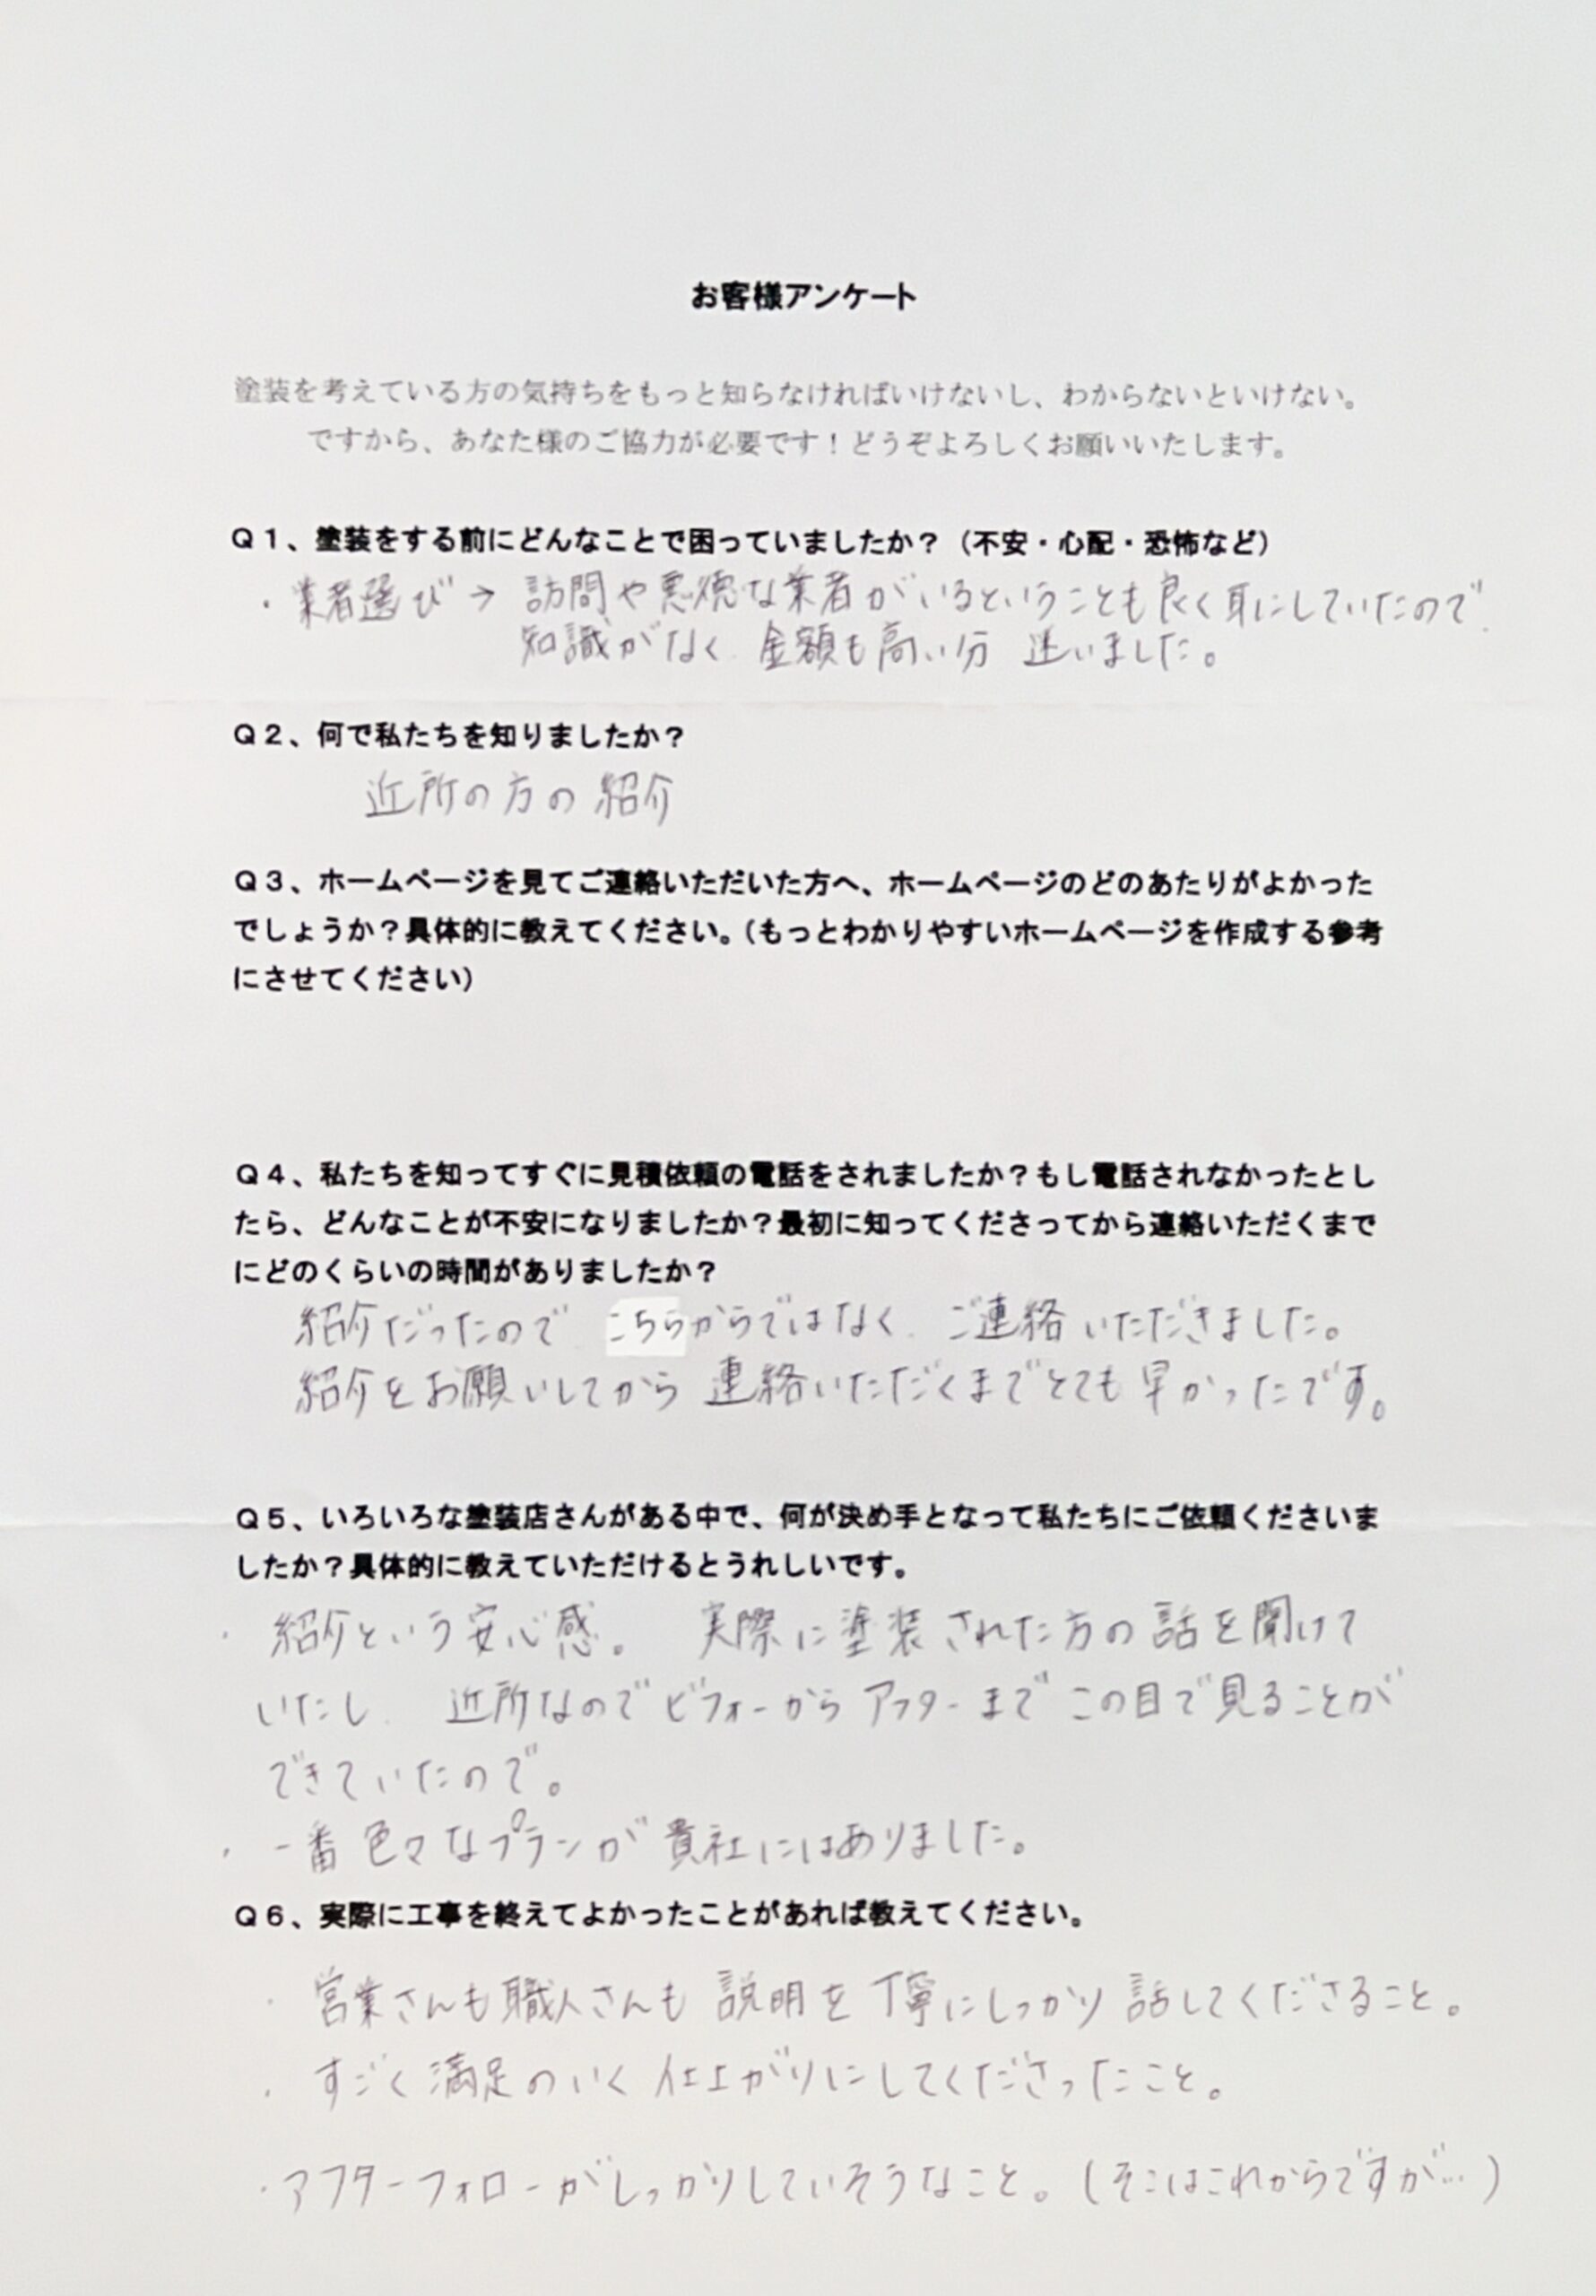 お客様アンケート
塗装を考えている方の気持ちをもっと知らなければいけないし、わからないといけない。
ですから、あなた様のご協力が必要です！どうぞよろしくお願いいたします。
Ｑ１、塗装をする前にどんなことで困っていましたか？（不安・心配・恐怖など）
・業者選び→訪問や悪徳な業者がいるということも良く耳にしていたので、
知識がなく、金額も高い分 迷いました。
Ｑ２、何で私たちを知りましたか？
近所の方の紹介
Ｑ３、ホームページを見てご連絡いただいた方へ、ホームページのどのあたりがよかった
でしょうか？具体的に教えてください。（もっとわかりやすいホームページを作成する参考
にさせてください）
Ｑ４、私たちを知ってすぐに見積依頼の電話をされましたか？もし電話されなかったとし
たら、どんなことが不安になりましたか？最初に知ってくださってから連絡いただくまで
にどのくらいの時間がありましたか？
紹介だったので、こちらからではなく、ご連絡いただきました。
紹介をお願いしてから連絡いただくまでとても早かったです。
Ｑ５、いろいろな塗装店さんがある中で、何が決め手となって私たちにご依頼くださいま
したか？具体的に教えていただけるとうれしいです。
・紹介という安心感。 実際に塗装された方の話を聞けて
いたし、近所なのでビフォーからアフターまでこの目で見ることが
できていたので。
・一番色々なプランが貴社にはありました。
Ｑ６、実際に工事を終えてよかったことがあれば教えてください。
・営業さんも職人さんも説明を丁寧にしっかり話してくださること。
・すごく満足のいく仕上がりにしてくださったこと。
・アフターフォローがしっかりしていそうなこと。（そこはこれからですが…）